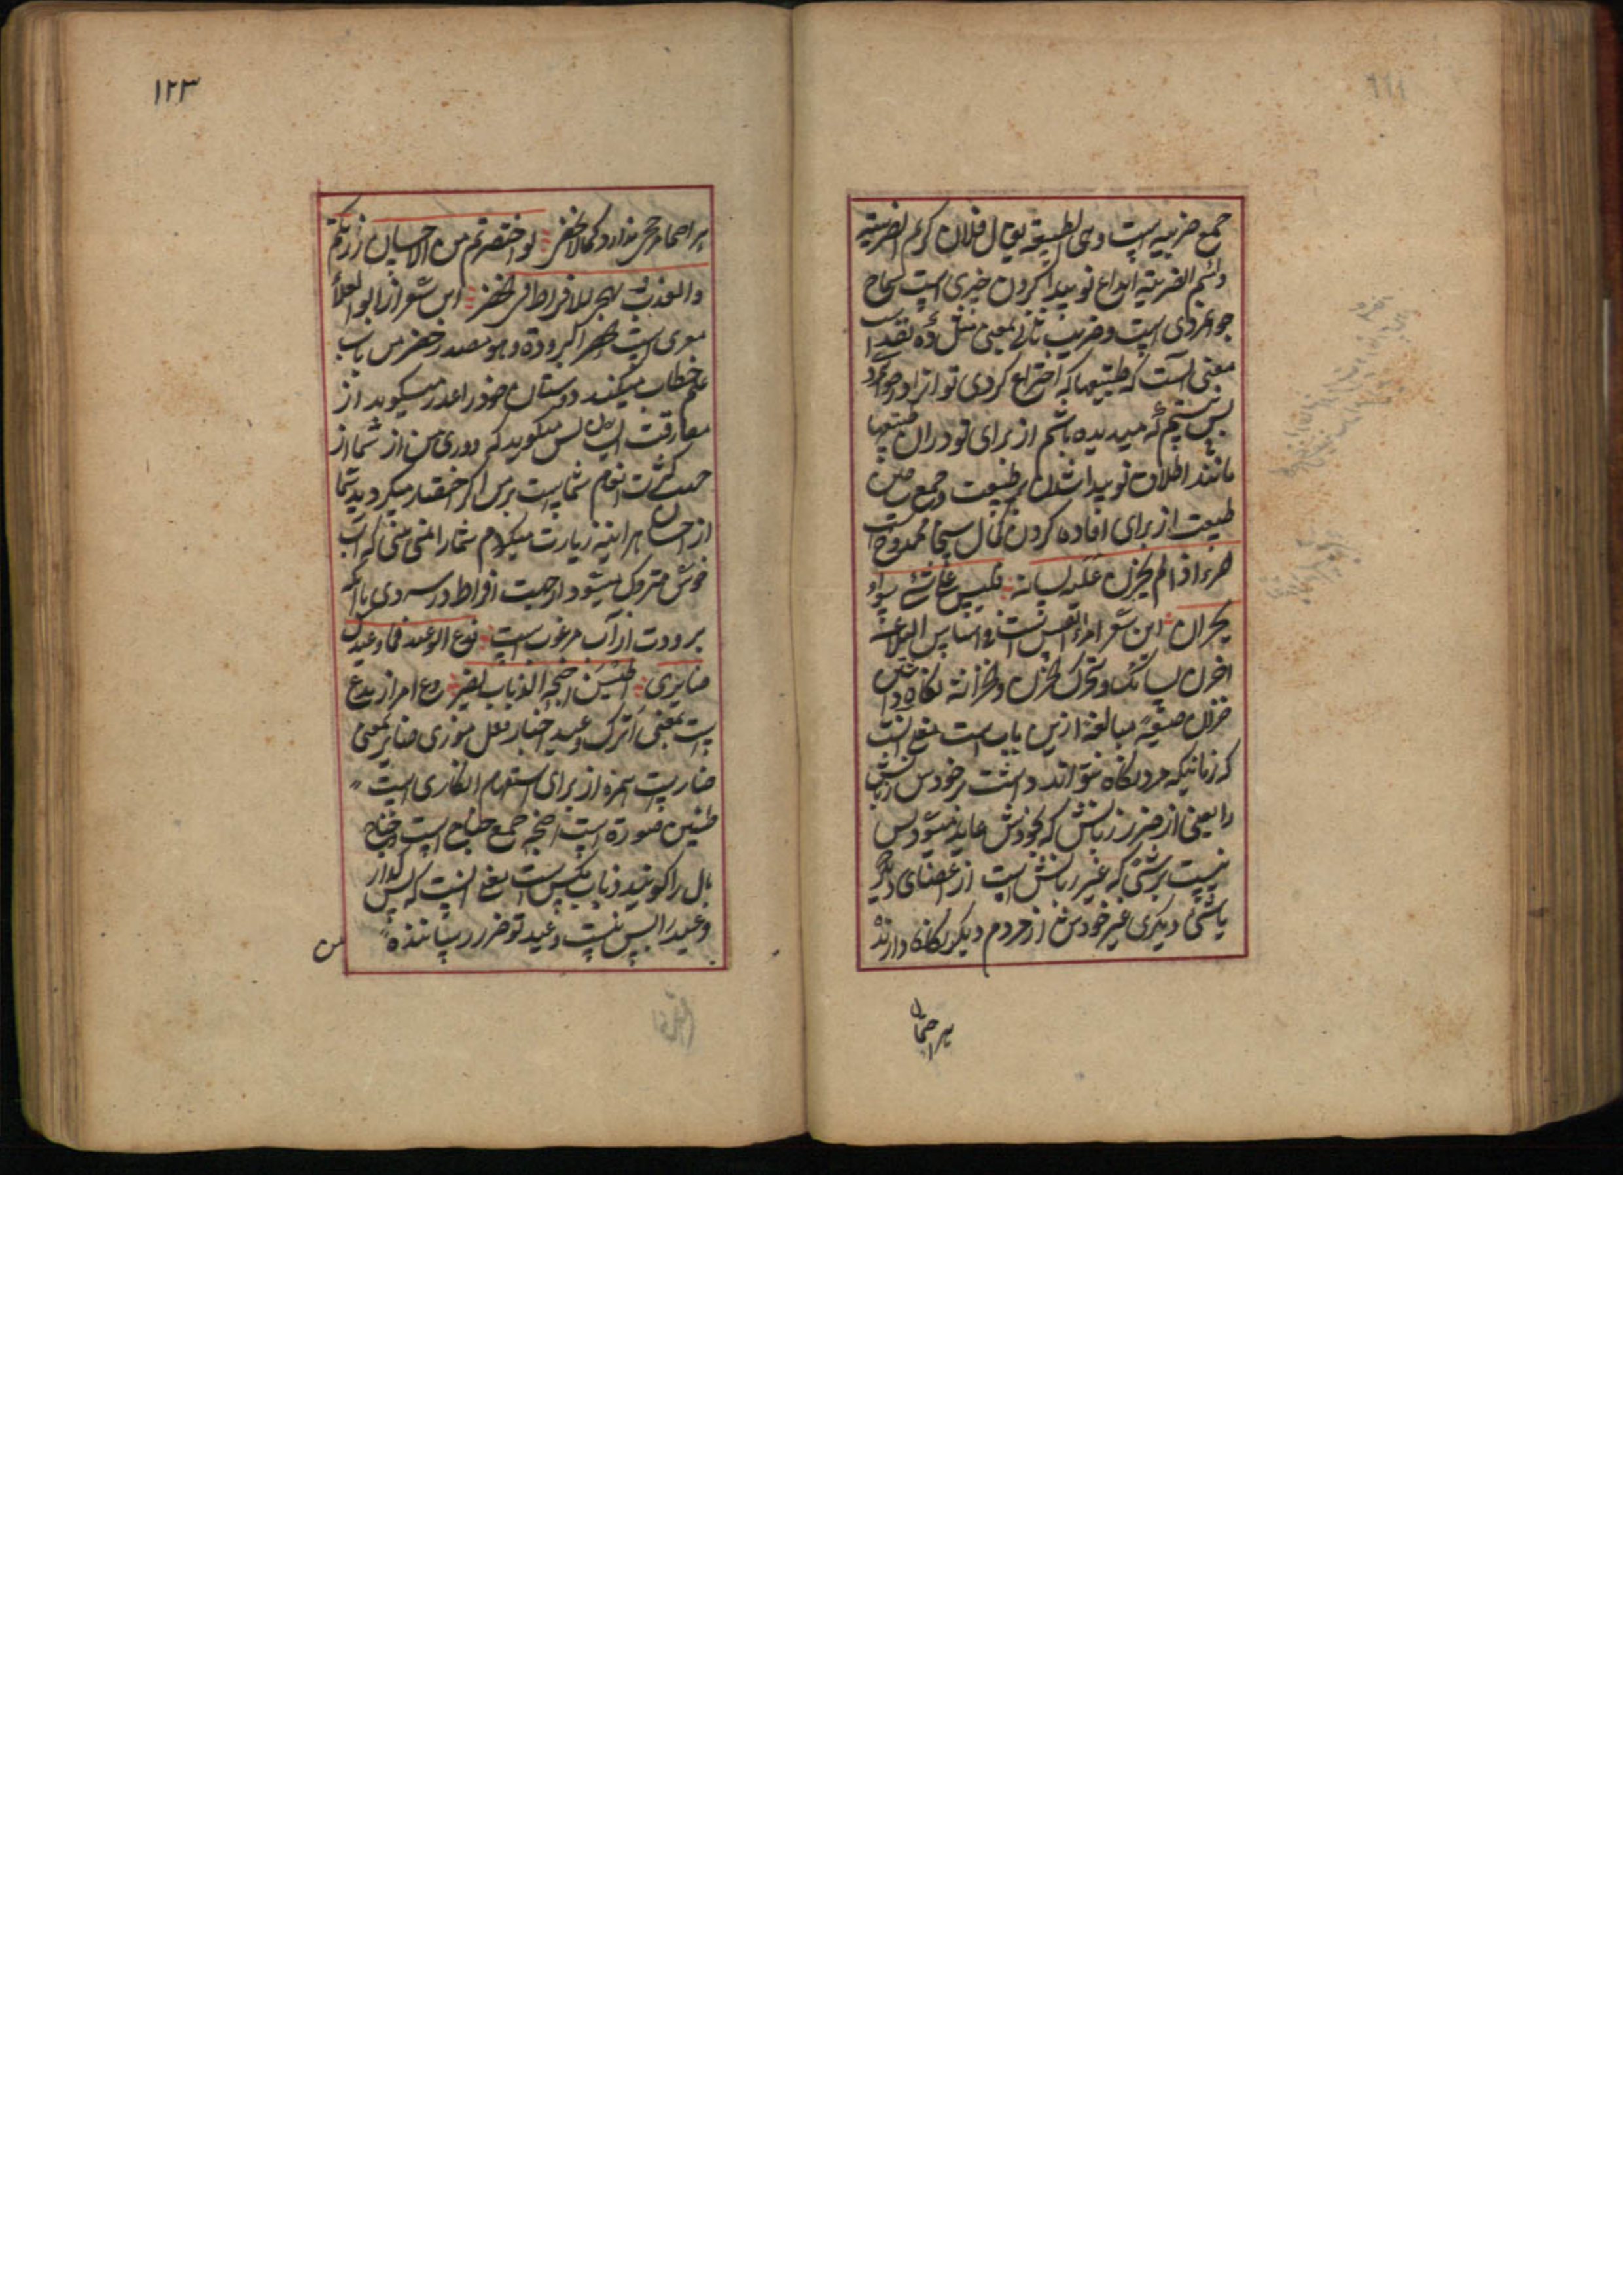 جمع ضریبه است وهی الطبیعة یقال فلان کریم الضریبه
ولئیم الضریبة ابداع نو پیدا کردن چیزی است سماح
جوانمردی است وضریب ثانی بمعنی مثل
معنی آنست که طبیعتها که اختراع کردی تو آنرا در جوانمردی
پس نیستیم که میدیده باشم از برای تو در آن طبیعتها
مانند اطلاق نو پیدا شدن بر طبیعت وجمع
طبیعت از برای افاده کردن کمال سخا ممدوح است
المرء اذا لم یخزن علیه لسانه فلیس علی شیء سواه
بخزان این شعر امرء القیس است فی اساس البلاغة
اخزن لسانک وسرک الخزن والخزانة نگاه داشتن
خزان صیغهٔ مبالغه ازین باب است معنی آنست
که زمانیکه مرد نگاه نتواند داشت بر خودش زبانش
را یعنی از ضرر زبانش که بخودش عاید میشود پس
نیست بر شئی که غیر زبانش است از اعضای دیگر
یا شئی دیگری غیر خودش از مردم دیگر نگاه دارنده
بر احتمال
١٢٣
بر احتمال رجحی ندارد کما لا یخفی لو اختصرتم من الاحسان زرتکم
والعذب یهجر للافراط فی الخصر این شعر از ابو العلاء
معری است خصر البرودة وهو مصدر خصر من باب
علم خطاب میکند دوستان خود را عذر میگوید از
مفارقت ایشان پس میگوید که دوری من از شما از
جهت کثرت انعام شماست بر من اگر اختصار میکردید شما
از احسان هر آینه زیارت میکردم شما را نمی بینی که آب
خوش متروک میشود از جهت افراط در سردی با آنکه
برودت از آب مرغوب است فدع الوعید فما وعیدک
ضائری اطنین اجنحة الذباب یضیر دع امر از یدع
است بمعنی اترک وعید اخبار بفعل موذی ضایر بمعنی
ضار است همزه از برای استفهام انکاری است
طنین صوت است اجنحه جمع جناح است وجناح
بال را گویند ذباب مگس است یعنی آنست که پس بگذار
وعید را پس نیست وعید تو ضرر رساننده
من